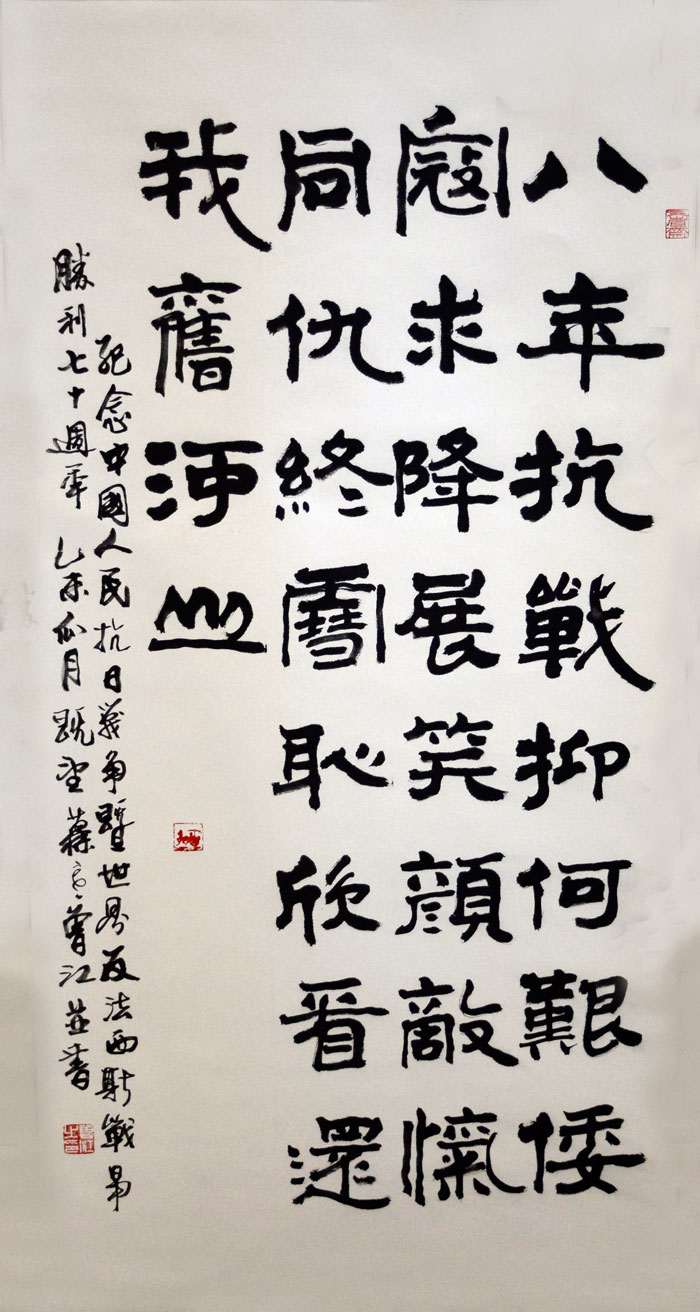 八年抗戰抑何艱倭
寇求降展笑顏敵愾
同仇終雪恥欣看還
我舊河山
紀念中國人民抗日战争暨世界反法西斯戰争
勝利七十週年 乙未瓜月既望 曾江並書